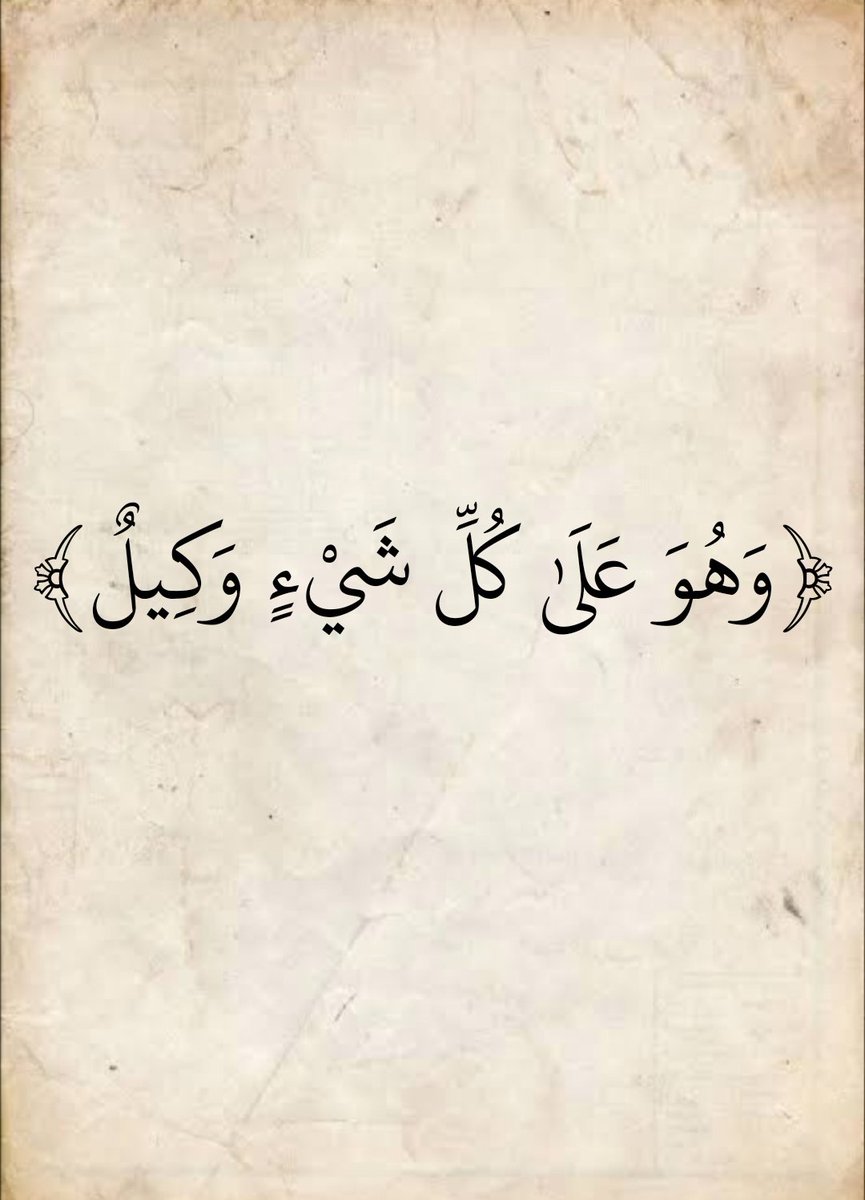 ﴿وَهُوَ عَلَىٰ كُلِّ شَيْءٍ وَكِيلٌ﴾